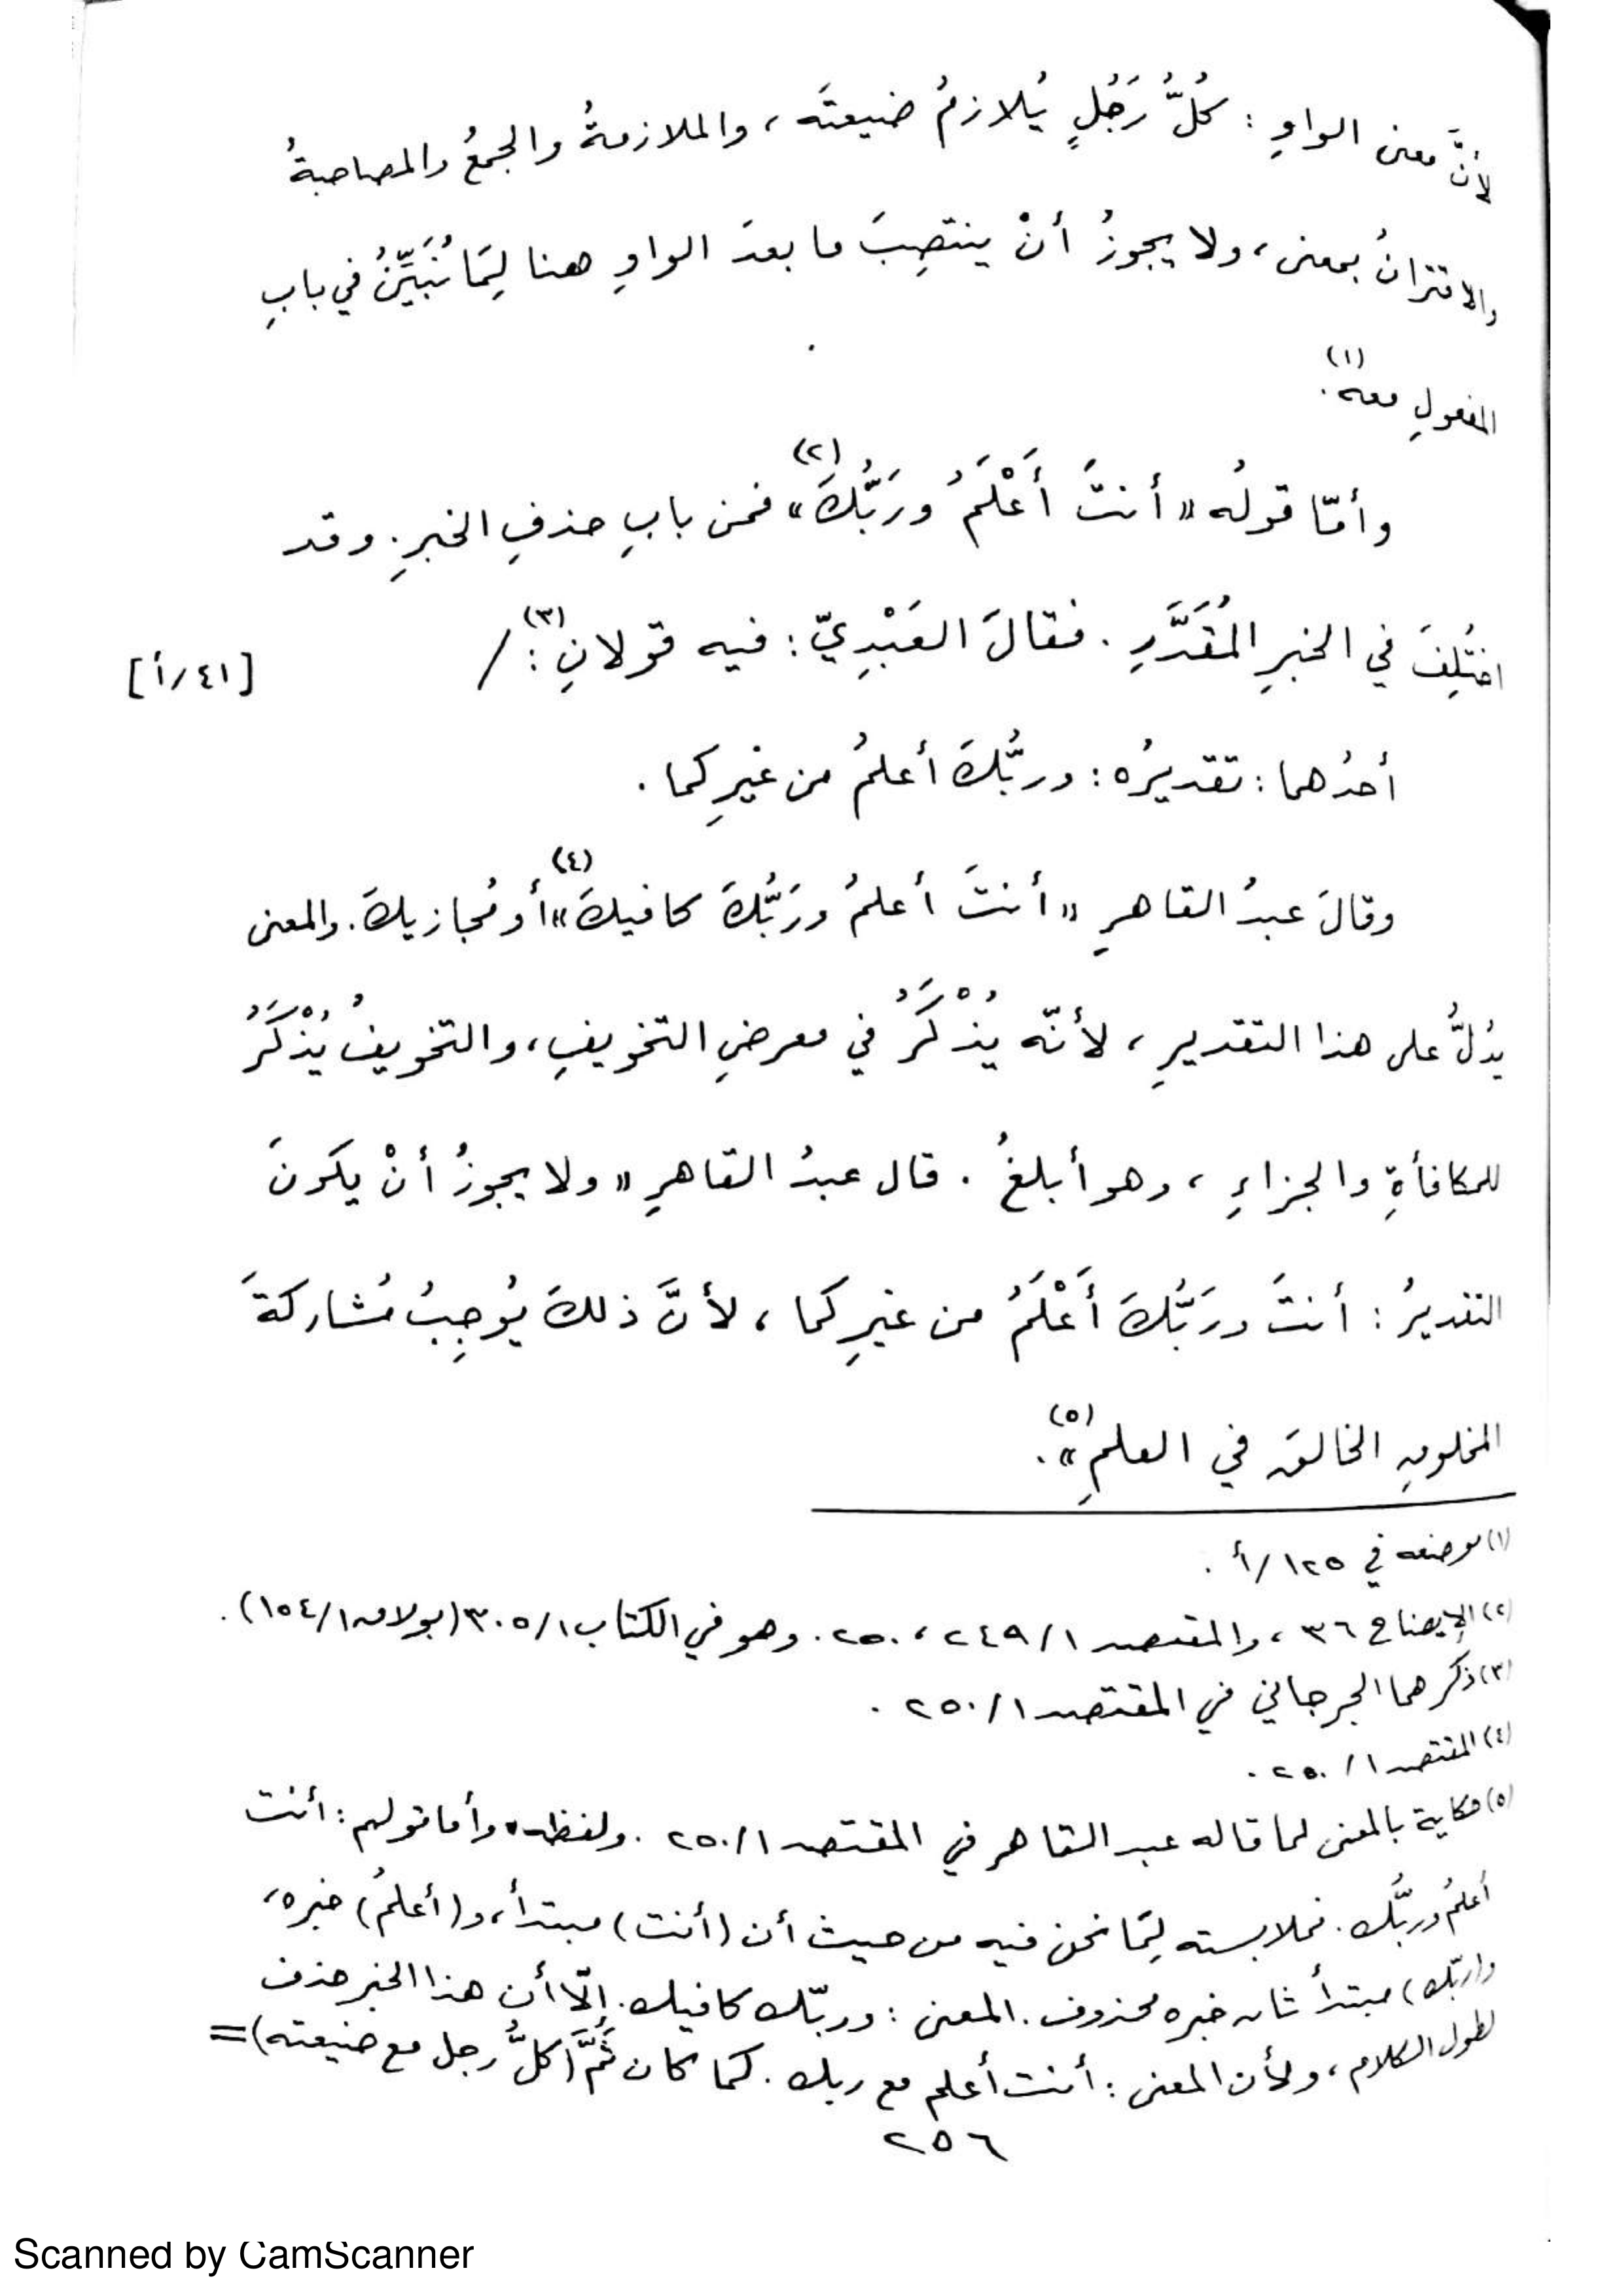 لأنَّ معنى الواوِ : كُلُّ رَجُلٍ يُلازمُ ضيعتَه ، والملازمةُ والجمعُ والمصاحبةُ
والاقترانُ بمعنى ، ولا يجوزُ أنْ ينتصِبَ ما بعدَ الواوِ هنا لِمَا نُبَيِّنُ في بابِ
المفعولِ معه (١) .
وأمّا قولُه « أنتَ أَعْلَمُ ورَبُّكَ » (٢) فمن بابِ حذفِ الخبرِ . وقد
اختُلِفَ في الخبرِ المُقَدَّرِ . فقالَ العَبْدِيّ : فيه قولانِ (٣) : / [٤١/أ]
أحدُهما : تقديرُه : وربُّكَ أعلمُ من غيرِكما .
وقالَ عبدُ القاهرِ « أنتَ أعلمُ ورَبُّكَ كافيكَ » (٤) أو مُجازيكَ . والمعنى
يدُلُّ على هذا التقديرِ ، لأنّه يُذْكَرُ في معرضِ التخويفِ ، والتخويفُ يُذْكَرُ
للمكافأةِ والجزاءِ ، وهو أبلغُ . قال عبدُ القاهرِ « ولا يجوزُ أنْ يكونَ
التقديرُ : أنتَ ورَبُّكَ أَعْلَمُ من غيرِكما ، لأنَّ ذلكَ يُوجِبُ مُشاركةَ
المخلوقِ الخالقَ في العلمِ » (٥) .
(١) موضعه في ١٢٥/أ .
(٢) الإيضاح ٣٦ ، والمقتصد ٢٤٩/١ ، ٢٥٠ . وهو في الكتاب ٣٠٥/١ (بولاق ١٥٤/١) .
(٣) ذكرهما الجرجاني في المقتصد ٢٥٠/١ .
(٤) المقتصد ٢٥٠/١ .
(٥) حكاية بالمعنى لما قاله عبد القاهر في المقتصد ٢٥٠/١ . ولفظه « وأما قولهم : أنت
أعلمُ وربُّك . فملابسته لِمَا نحن فيه من حيث أن (أنت) مبتدأ ، و(أعلمُ) خبره ،
و(ربّك) مبتدأ ثان خبره محذوف . المعنى : وربّك كافيك . إلّا أن هذا الخبر حذف
لطول الكلام ، ولأن المعنى : أنت أعلم مع ربك . كما كان ثَمَّ (كلُّ رجل مع ضيعته) =
٢٥٦
Scanned by CamScanner